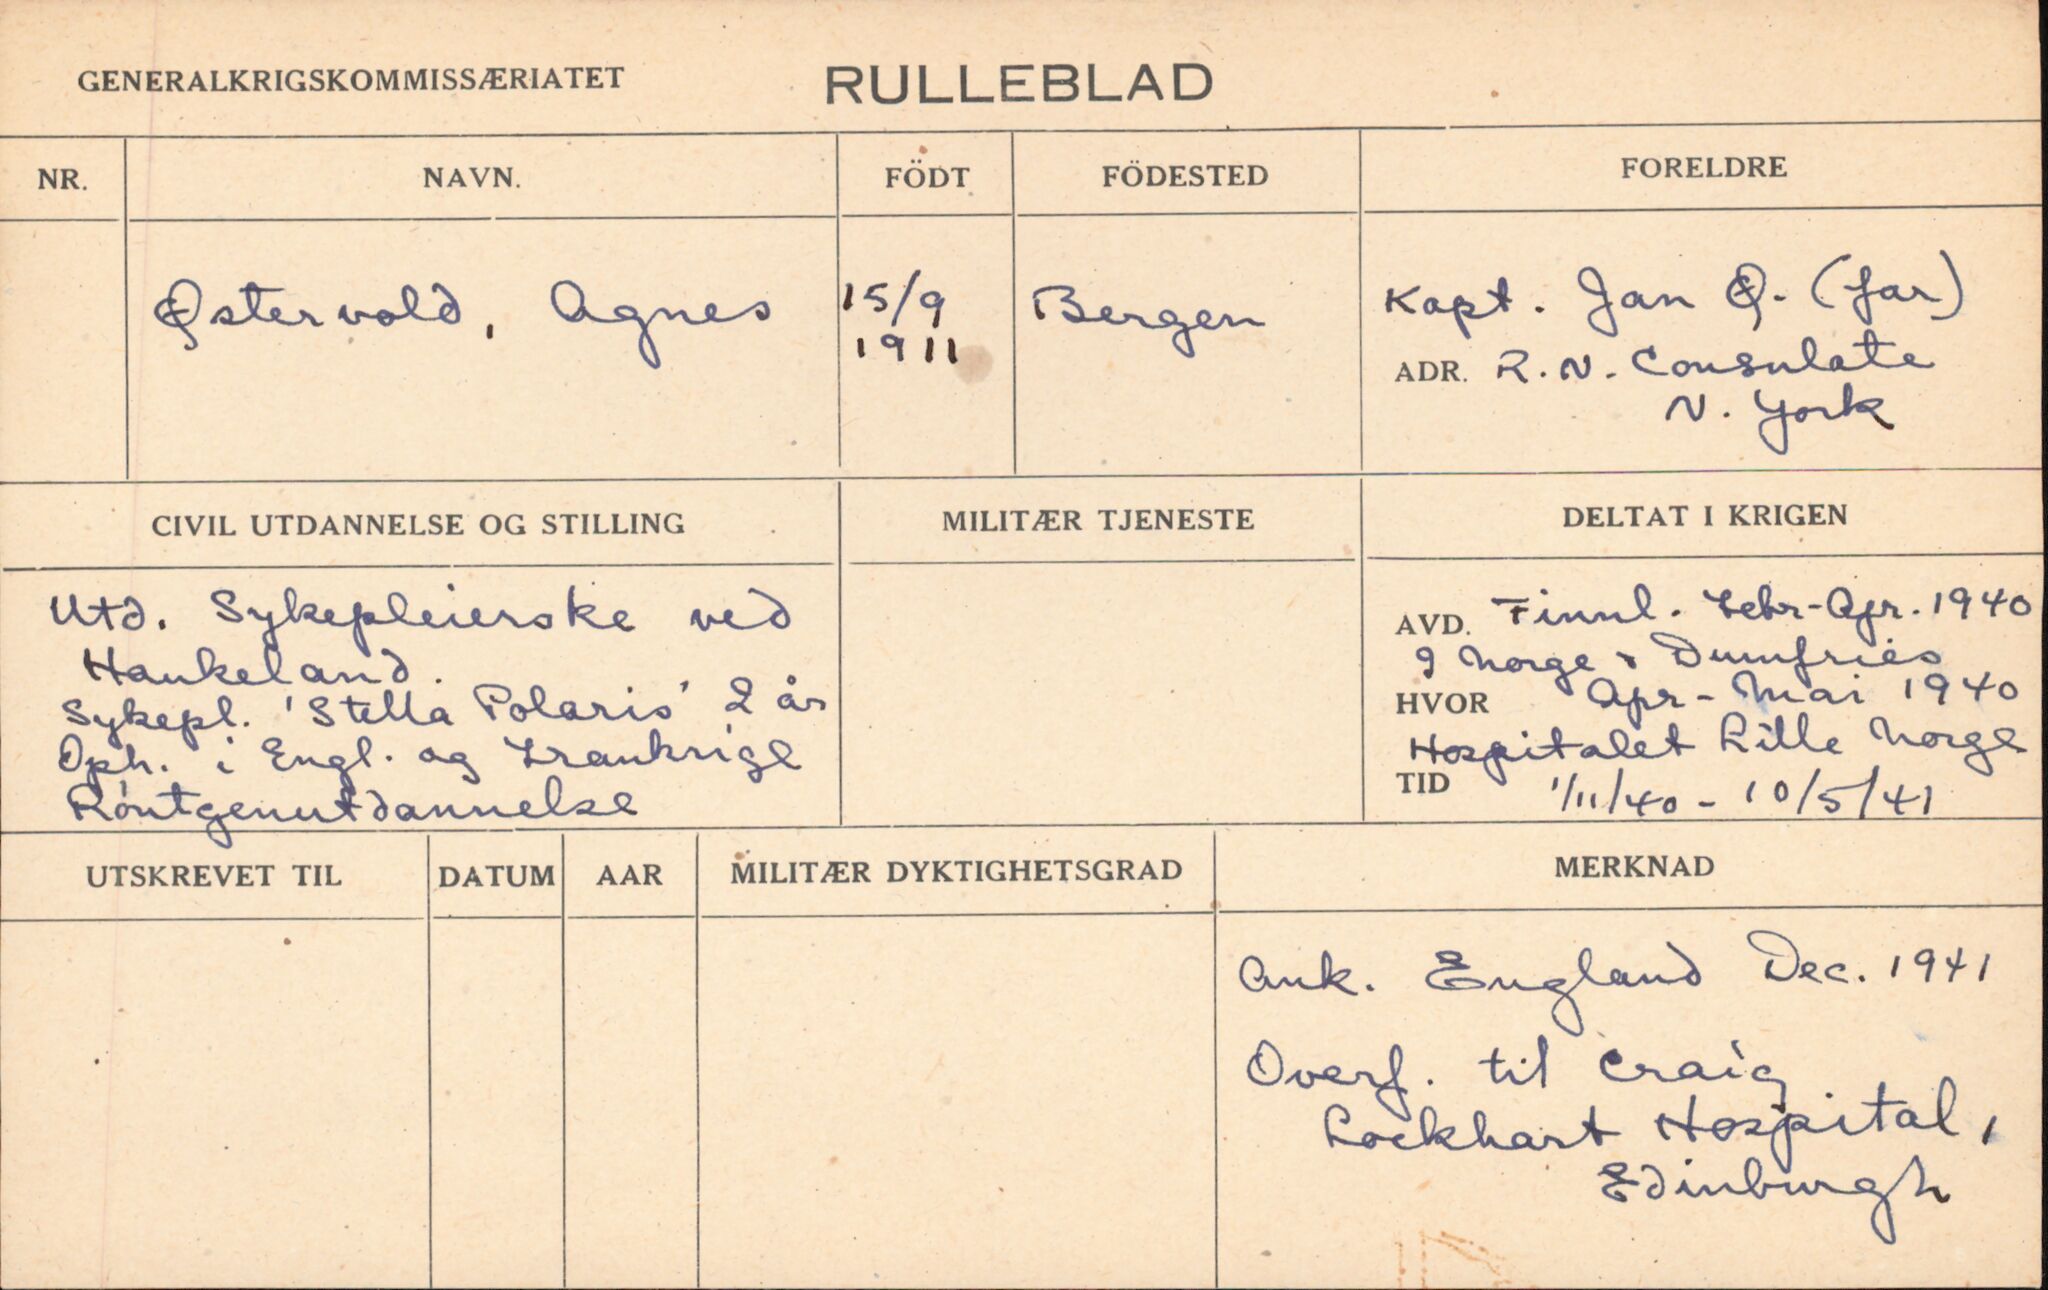 GENERALKRIGSKOMMISSÆRIATET RULLEBLAD
NR. NAVN. FÖDT FÖDESTED FORELDRE
Østervold, Agnes
15/9
1911
Bergen
Kapt. Jan Ø. (far)
ADR. R. N. Consulate
N. York
CIVIL UTDANNELSE OG STILLING
Utd. Sykepleierske ved
Haukeland.
Sykepl. 'Stella Polaris' 2 år
Oph. i Engl. og Frankrige
Röntgenutdannelse
MILITÆR TJENESTE
DELTAT I KRIGEN
AVD. Finnl. Febr-Apr. 1940
I Norge & Dumfries
HVOR Apr - Mai 1940
Hospitalet Lille Norge
TID 1/11/40 - 10/5/41
UTSKREVET TIL DATUM AAR MILITÆR DYKTIGHETSGRAD MERKNAD
Ank. England Dec. 1941
Overf. til Craig
Lockhart Hospital,
Edinburgh